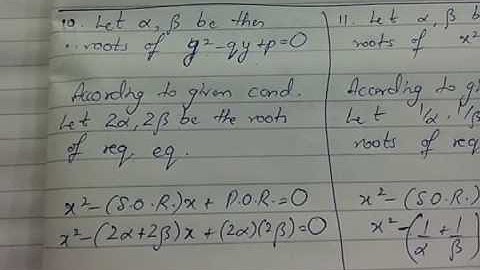 10. Let α, β be the
roots of y²-qy+p=0
According to given cond.
Let 2α, 2β be the roots
of req. eq.
x²-(S.O.R.)x + P.O.R.=0
x²-(2α+2β)x+(2α)(2β)=0
11. Let α, β b
roots of x²
According to gi
Let 1/α, 1/β
roots of req
x²-(S.O.R.)
x²-(1/α+1/β)